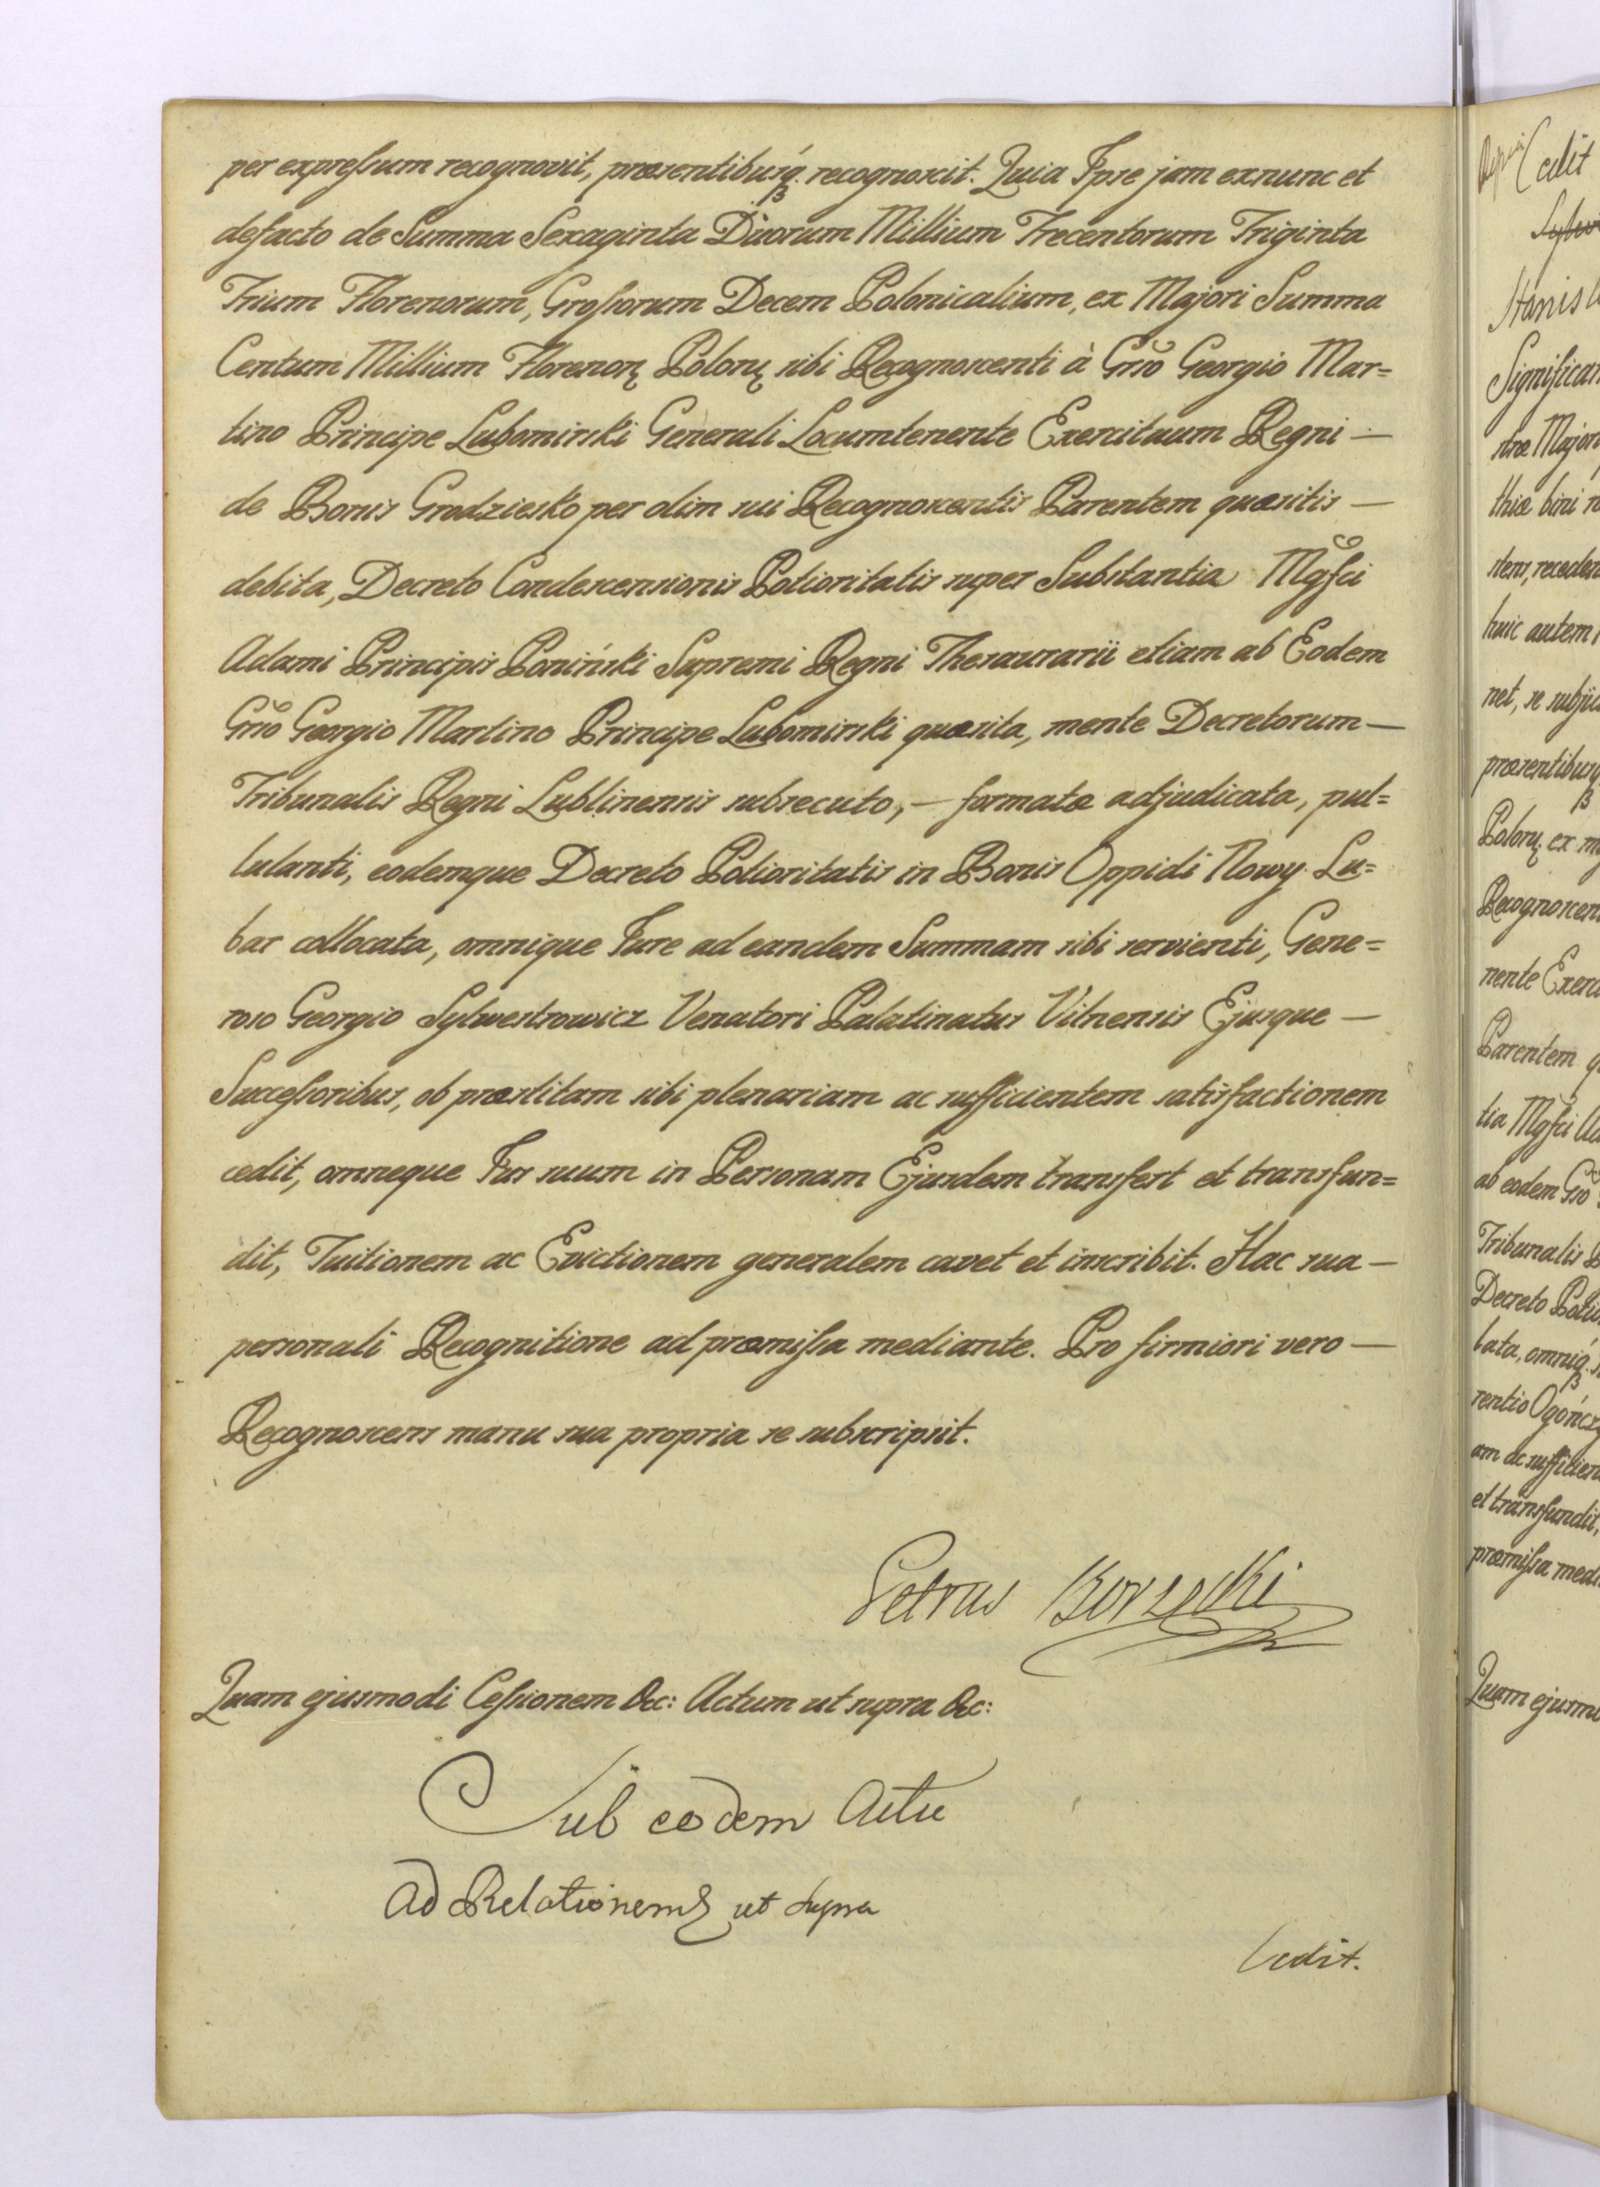 per expressum recognovit, præsentibusq. recognoscit. Quia Ipse jam exnunc et
defacto de Summa Sexaginta Duorum Millium Trecentorum Triginta
Trium Florenorum, Grossorum Decem Polonicalium, ex Majori Summa
Centum Millium Florenorꝝ Polorꝝ sibi Recognoscenti à Grso Georgio Mar=
tino Principe Lubomirski Generali Locumtenente Exercituum Regni —
de Bonis Grodziesko per olim sui Recognoscentis Parentem quæsitis —
debita, Decreto Condescensionis Potioritatis super Substantia Mgfci
Adami Principis Poniński Supremi Regni Thesaurarii etiam ab Eodem
Grso Georgio Martino Principe Lubomirski quæsita, mente Decretorum —
Tribunalis Regni Lublinensis subsecuto, — formatæ adjudicata, pul=
lulanti, eodemque Decreto Potioritatis in Bonis Oppidi Nowy Lu=
bar collocata, omnique Jure ad eandem Summam sibi servienti, Gene=
roso Georgio Sylwestrowicz Venatori Palatinatus Vilnensis Ejusque —
Successoribus, ob præstitam sibi plenariam ac sufficientem satisfactionem
cedit, omneque Jus suum in Personam Ejusdem transfert et transfun=
dit, Tuitionem ac Evictionem generalem cavet et inscribit. Hac sua —
personali Recognitione ad præmissa mediante. Pro firmiori vero —
Recognoscens manu sua propria se subscripsit.
Petrus
Quam ejusmodi Cessionem &c: Actum ut supra &c:
Sub eodem Actu
Ad Relationem ut supra
Cedit.
Cedit
Stanisl
Significan
stræ Major
thiæ bini n
stens, receden
huic autem
net, se subjic
præsentibusq
Polorꝝ ex m
Recognoscen
nente Exerc
Parentem q
tia Mgfci A
ab eodem Grso
Tribunalis
Decreto Potio
lata, omniq.
rentio Ogóncz
am ac sufficien
et transfundit,
præmissa medi
Quam ejusmo